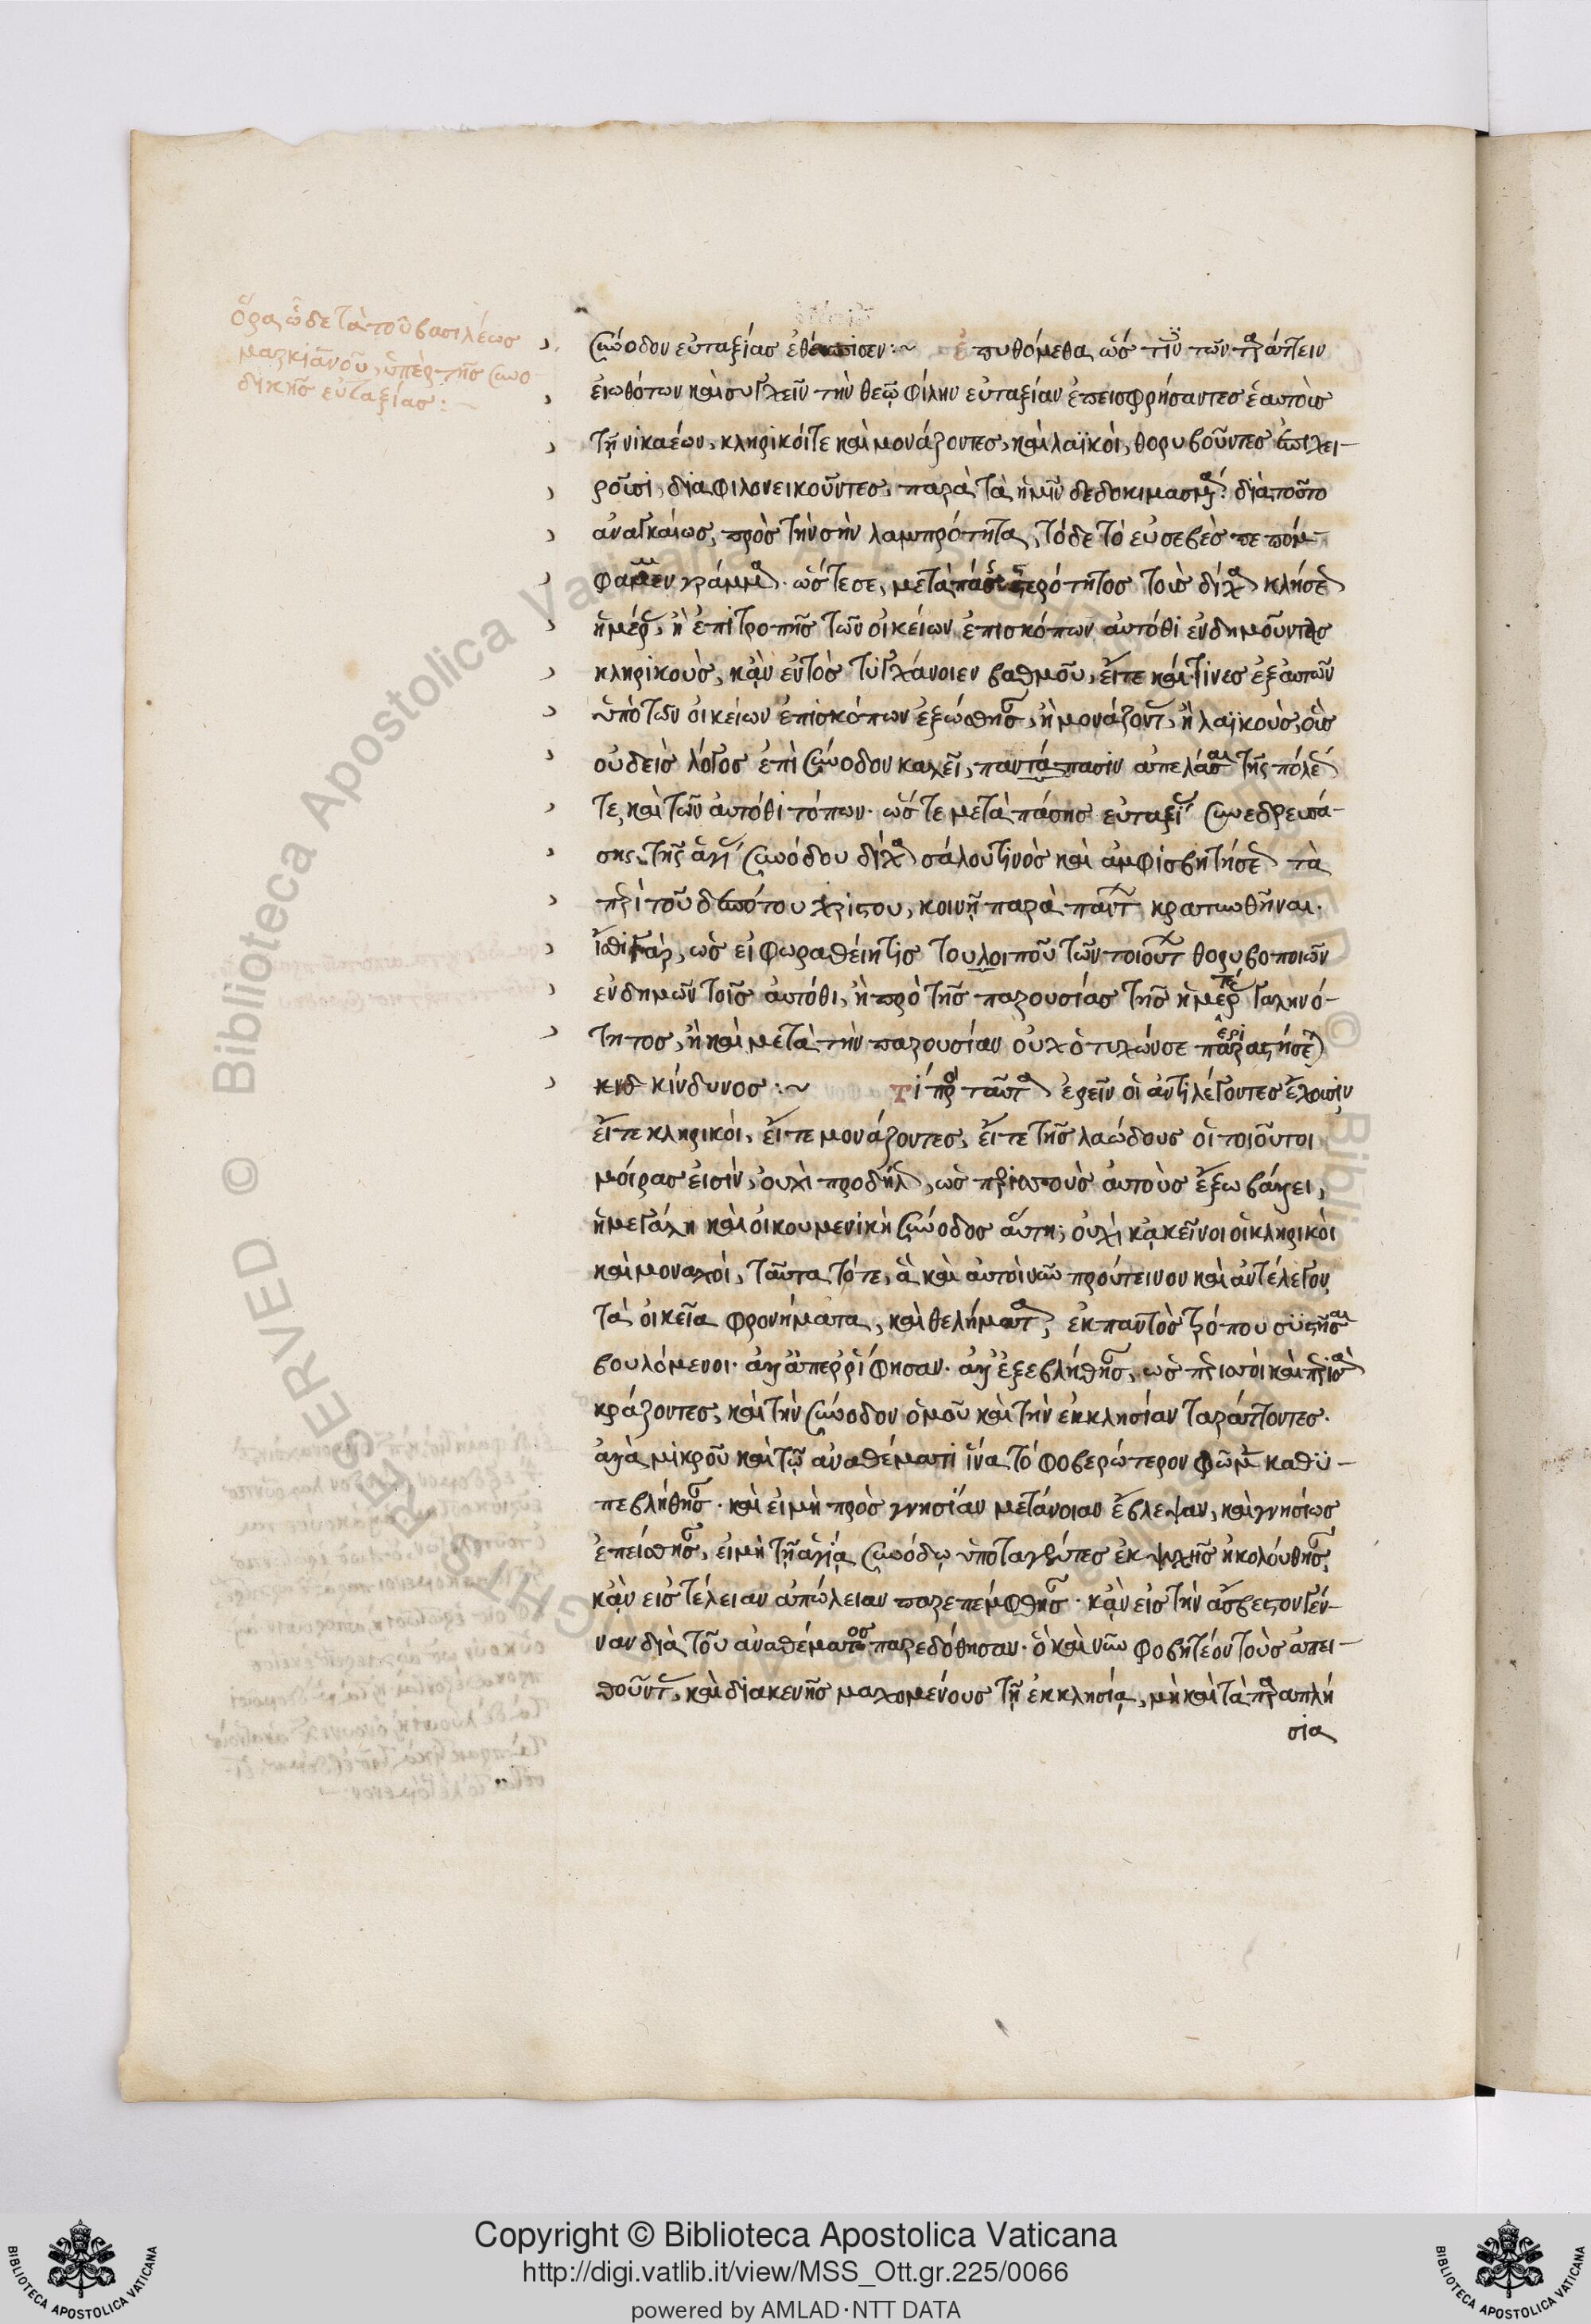 ὅρα ὧδε τὰ τοῦ βασιλέως
μαρκιανοῦ, ὑπὲρ τῆς συνο
δικῆς εὐταξίας:~
σύνοδον εὐταξίας ἐθέσπισεν:~ ἐπυθόμεθα ὥς τινων τῶν ταράττειν
εἰωθότων καὶ συγχεῖν τὴν θεῷ φίλην εὐταξίαν ἐπεισφρήσαντες ἑαυτοὺς
τῇ νικαέων, κληρικοί τε καὶ μονάζοντες, καὶ λαϊκοὶ, θορυβοῦντες ἐπιχει-
ροῦσι, διαφιλονεικοῦντες, παρὰ τὰ ἡμῖν δεδοκιμασμένα· διὰ τοῦτο
ἀναγκαίως, πρὸς τὴν σὴν λαμπρότητα, τόδε τὸ εὐσεβὲς πεπόμ-
φαμεν γράμμα. ὥστε σε, μετὰ πάσης τερότητος τοὺς δίχα κλήσεως
ἡμέρας, ἢ ἐπιτροπῆς τῶν οἰκείων ἐπισκόπων αὐτόθι ἐνδημοῦντας
κληρικοὺς, κᾂν ἐντὸς τυγχάνοιεν βαθμοῦ, εἴτε καί τινες ἐξ αὐτῶν
ὑπὸ τῶν οἰκείων ἐπισκόπων ἐξώσθησαν, ἢ μονάζοντας, ἢ λαϊκοὺς, οὓς
οὐδεὶς λόγος ἐπὶ σύνοδον καλεῖ, παντάπασιν ἀπελάσαι τῆς πόλεώς
τε, καὶ τῶν αὐτόθι τόπων. ὥστε μετὰ πάσης εὐταξίας συνεδρευσά-
σης, τῆς ἁγίας συνόδου δίχα σάλου τινὸς καὶ ἀμφισβητήσεως τὰ
περὶ τοῦ δεσπότου χριστοῦ, κοινῇ παρὰ πάντων κρατυνθῆναι.
ἴσθι γὰρ, ὡς εἰ φωραθείη τις τοῦ λοιποῦ τῶν τοιούτων θορυβοποιῶν
ἐνδημῶν τοῖς αὐτόθι, ἢ πρὸ τῆς παρουσίας τῆς ἡμετέρας γαληνό-
τητος, ἢ καὶ μετὰ τὴν παρουσίαν οὐχ ὁ τυχών σε περιστήσει
κίνδυνος:~ τί πρὸς ταῦτα ἐρεῖν οἱ ἀντιλέγοντες ἔχουσιν
εἴτε κληρικοὶ, εἴτε μονάζοντες, εἴτε τῆς λαώδους οἱ τοιοῦτοι
μοίρας εἰσὶν, οὐχὶ προδήλως, ὡς περισσοὺς αὐτοὺς ἔξω βάλλει,
ἡ μεγάλη καὶ οἰκουμενικὴ σύνοδος αὕτη; οὐχὶ κᾀκεῖνοι οἱ κληρικοὶ
καὶ μοναχοὶ, ταῦτα τότε, ἃ καὶ αὐτοὶ νῦν προύτεινον καὶ ἀντέλεγον
τὰ οἰκεῖα φρονήματα, καὶ θελήματα, ἐκ παντὸς τρόπου συστῆσαι
βουλόμενοι. ἀλλ' ἀπερρίφησαν. ἀλλ' ἐξεβλήθησαν, ὡς περισσοὶ καὶ περισσὰ
κράζοντες, καὶ τὴν σύνοδον ὁμοῦ καὶ τὴν ἐκκλησίαν ταράττοντες.
ἀλλὰ μικροῦ καὶ τῷ ἀναθέματι ἵνα τὸ φοβερώτερον φῶμεν καθϋ-
πεβλήθησαν. καὶ εἰ μὴ πρὸς γνησίαν μετάνοιαν ἔβλεψαν, καὶ γνησίως
ἐπείσθησαν, εἰ μὴ τῇ ἁγίᾳ συνόδῳ ὑποταγέντες ἐκ ψυχῆς ἠκολούθησαν,
κᾂν εἰς τέλειαν ἀπώλειαν παρεπέμφθησαν. κᾂν εἰς τὴν ἄσβεστον γέν-
ναν διὰ τοῦ ἀναθέματος παρεδόθησαν. ὃ καὶ νῦν φοβητέον τοὺς ἀπει-
θοῦντας, καὶ διακενῆς μαχομένους τῇ ἐκκλησίᾳ, μὴ καὶ τὰ παραπλή
σια
Copyright © Biblioteca Apostolica Vaticana
http://digi.vatlib.it/view/MSS_Ott.gr.225/0066
powered by AMLAD·NTT DATA
BIBLIOTECA APOSTOLICA VATICANA
BIBLIOTECA APOSTOLICA VATICANA